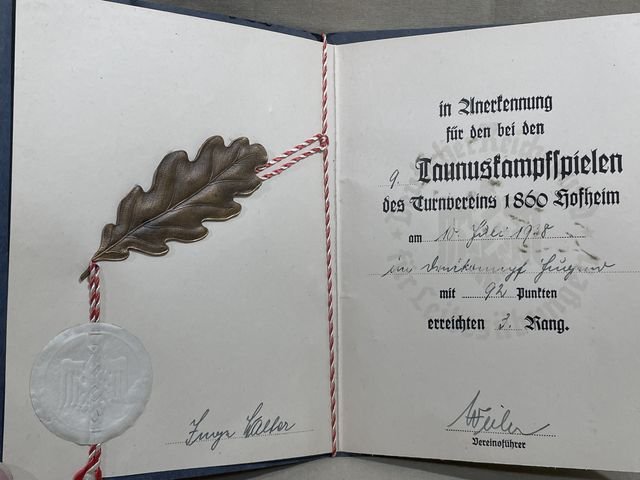 in Anerkennung
für den bei den
9. Taunuskampfspielen
des Turnvereins 1860 Hofheim
am 10. Juli 1938
im Dreikampf Jugend
mit 92 Punkten
erreichten 3. Rang.
Weiler
Vereinsführer